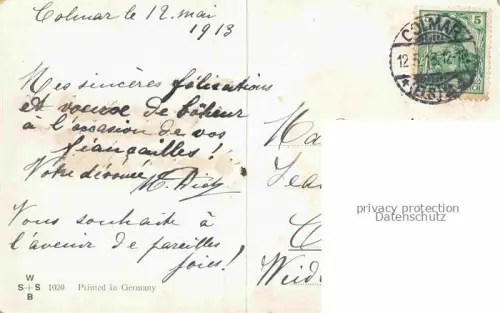 Colmar le 12. mai
1913
Mes sincères félicitations
et voeux de bonheur
à l'occasion de vos
fiançailles!
Votre dévoué
Vous souhaite à
l'avenir de pareilles
joies!
W
S+S
B
1020 Printed in Germany
COLMAR
5
privacy protection
Datenschutz